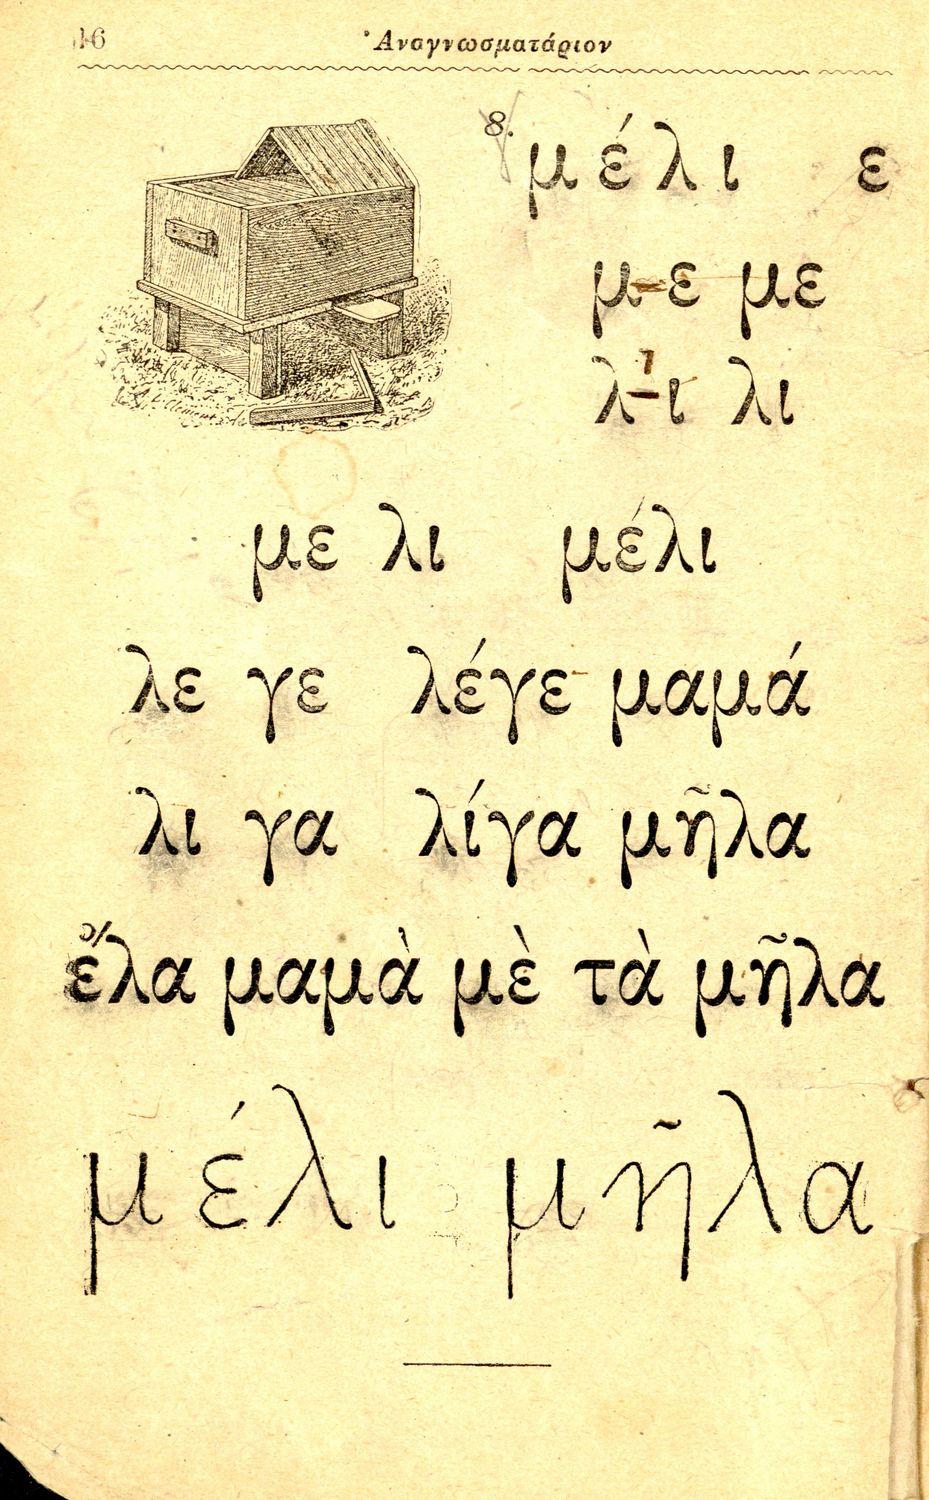 16 Ἀναγνωσματάριον
8. μέλι ε
μ-ε με
λ-ι λι
με λι μέλι
λε γε λέγε μαμά
λι γα λίγα μῆλα
ἔλα μαμὰ μὲ τὰ μῆλα
μέλι μῆλα